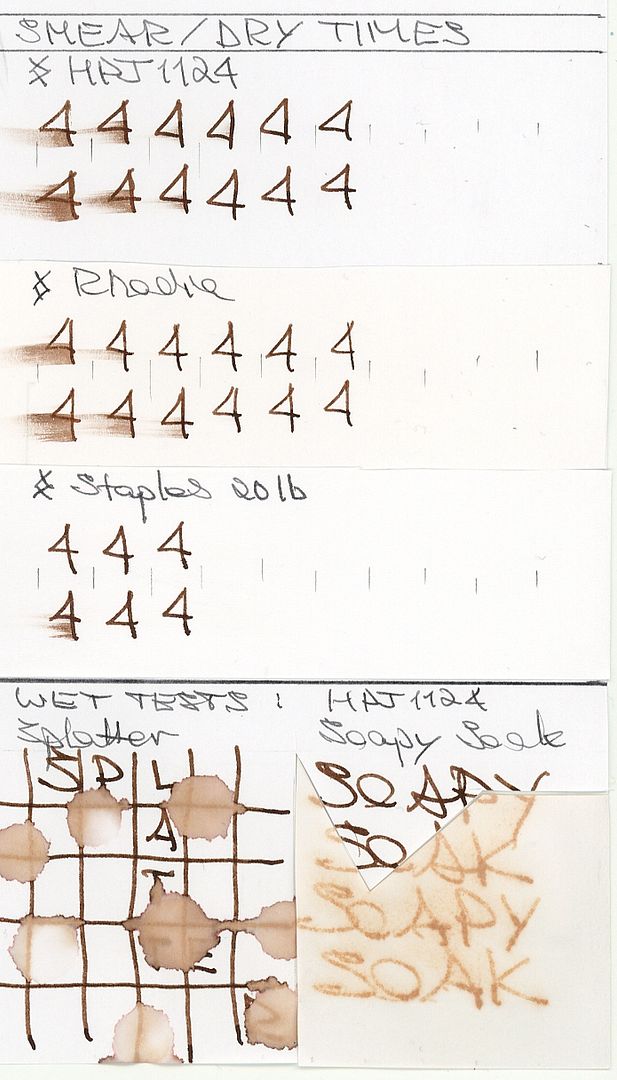 SMEAR/DRY TIMES
HPJ1124
4 4 4 4 4 4
4 4 4 4 4 4
Rhodia
4 4 4 4 4 4
4 4 4 4 4 4
Staples 20lb
4 4 4
4 4 4
WET TESTS: HPJ1124
Splatter
Soapy Soak
SPLAT
SOAPY
SO
SOAK
SOAPY
SOAK